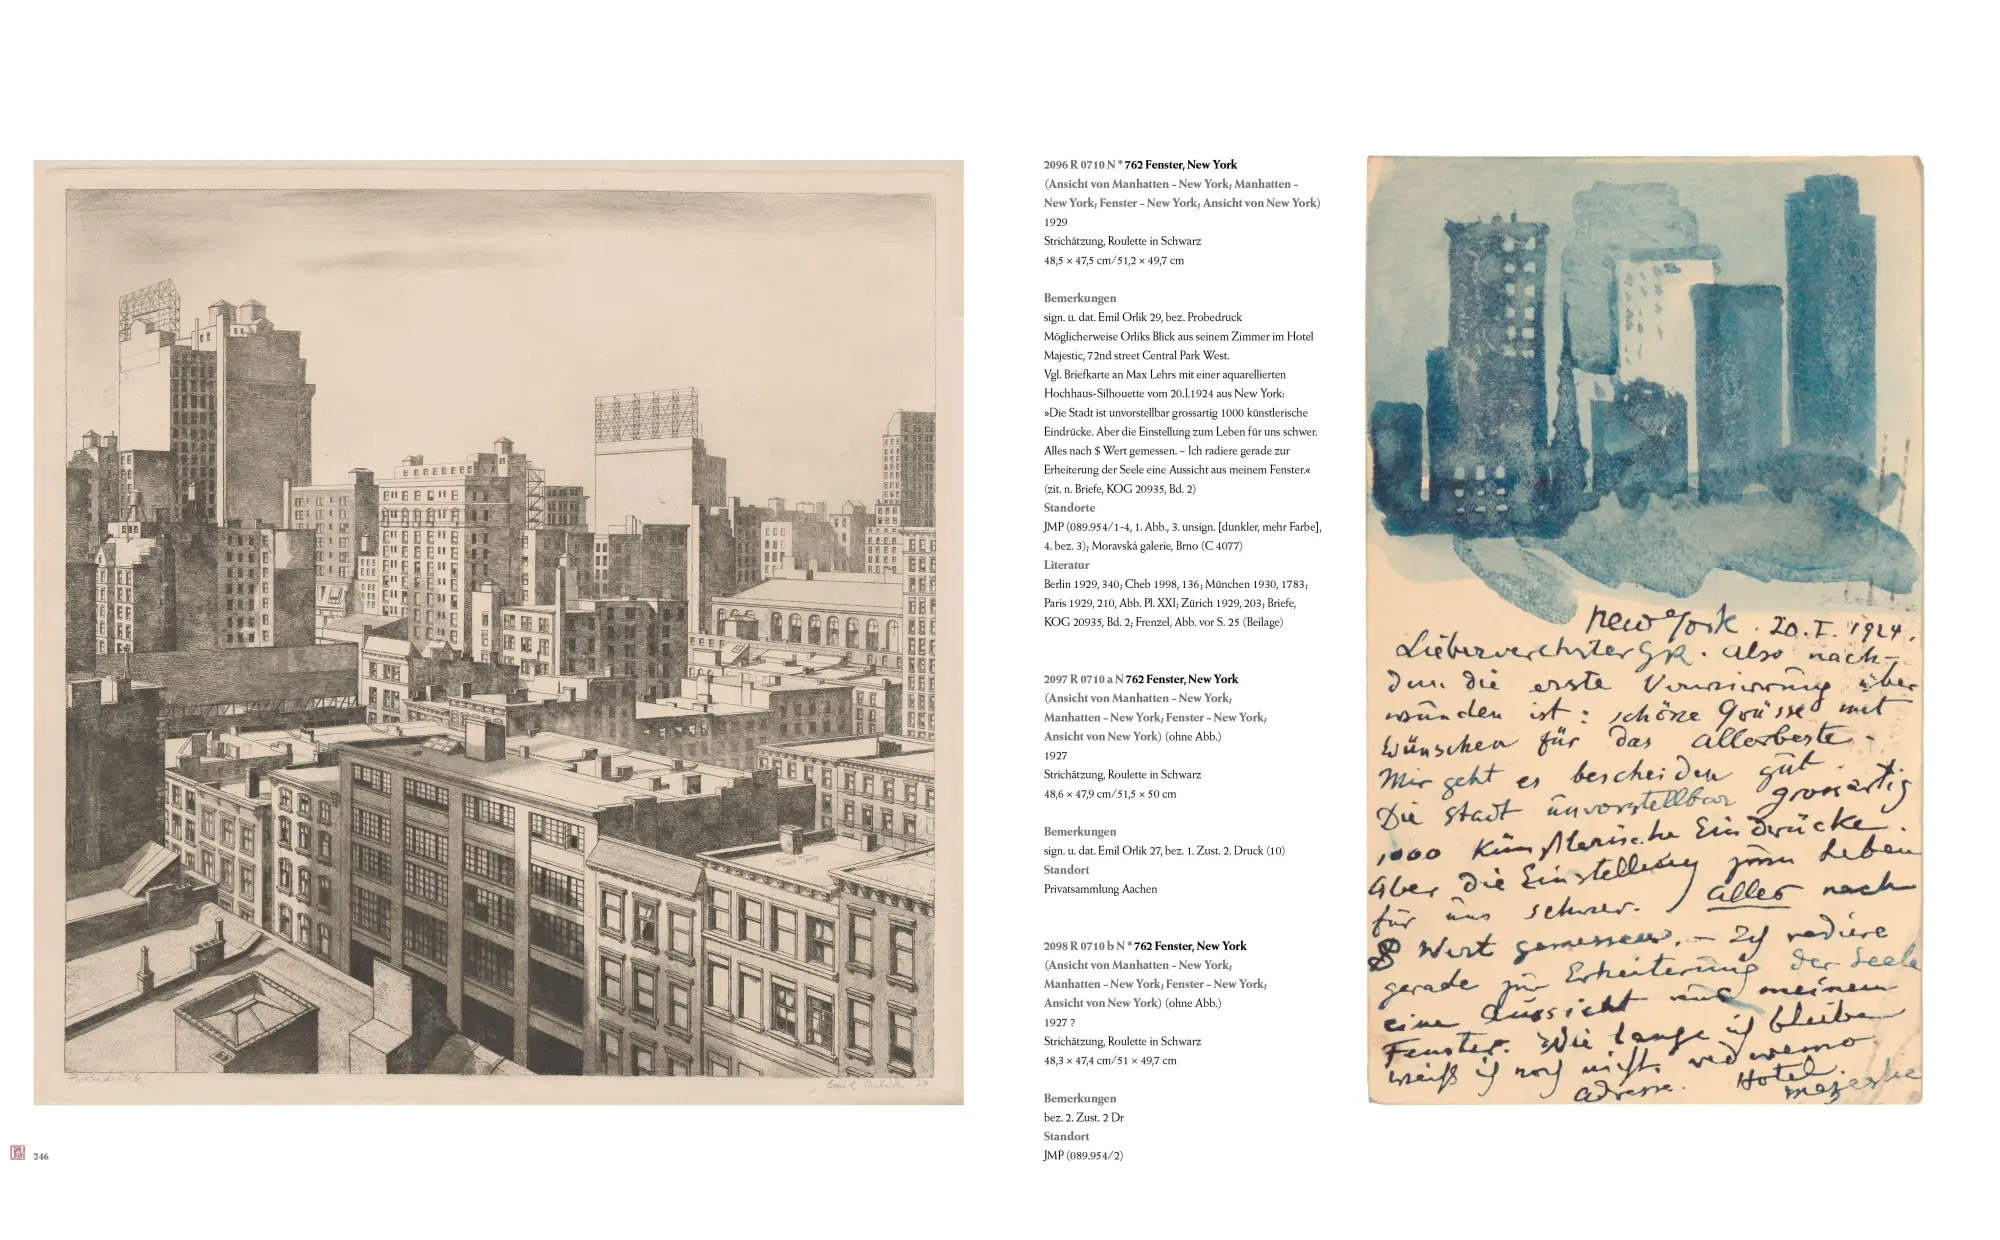 Probedruck
Emil Orlik 29
246
2096 R 0710 N * 762 Fenster, New York
(Ansicht von Manhatten – New York; Manhatten –
New York; Fenster – New York; Ansicht von New York)
1929
Strichätzung, Roulette in Schwarz
48,5 × 47,5 cm/51,2 × 49,7 cm
Bemerkungen
sign. u. dat. Emil Orlik 29, bez. Probedruck
Möglicherweise Orliks Blick aus seinem Zimmer im Hotel
Majestic, 72nd street Central Park West.
Vgl. Briefkarte an Max Lehrs mit einer aquarellierten
Hochhaus-Silhouette vom 20.I.1924 aus New York:
»Die Stadt ist unvorstellbar grossartig 1000 künstlerische
Eindrücke. Aber die Einstellung zum Leben für uns schwer.
Alles nach $ Wert gemessen. – Ich radiere gerade zur
Erheiterung der Seele eine Aussicht aus meinem Fenster.«
(zit. n. Briefe, KOG 20935, Bd. 2)
Standorte
JMP (089.954/1-4, 1. Abb., 3. unsign. [dunkler, mehr Farbe],
4. bez. 3); Moravská galerie, Brno (C 4077)
Literatur
Berlin 1929, 340; Cheb 1998, 136; München 1930, 1783;
Paris 1929, 210, Abb. Pl. XXI; Zürich 1929, 203; Briefe,
KOG 20935, Bd. 2; Frenzel, Abb. vor S. 25 (Beilage)
2097 R 0710 a N 762 Fenster, New York
(Ansicht von Manhatten – New York;
Manhatten – New York; Fenster – New York;
Ansicht von New York) (ohne Abb.)
1927
Strichätzung, Roulette in Schwarz
48,6 × 47,9 cm/51,5 × 50 cm
Bemerkungen
sign. u. dat. Emil Orlik 27, bez. 1. Zust. 2. Druck (10)
Standort
Privatsammlung Aachen
2098 R 0710 b N * 762 Fenster, New York
(Ansicht von Manhatten – New York;
Manhatten – New York; Fenster – New York;
Ansicht von New York) (ohne Abb.)
1927 ?
Strichätzung, Roulette in Schwarz
48,3 × 47,4 cm/51 × 49,7 cm
Bemerkungen
bez. 2. Zust. 2 Dr
Standort
JMP (089.954/2)
New York. 20. I. 1924.
Lieberverehrter. also nach-
dem die erste Verwirrung über
wunden ist: schöne Grüsse mit
wünschen für das allerbeste.
Mir geht es bescheiden gut.
Die Stadt unvorstellbar grossartig
1000 Künstlerische Eindrücke.
Aber die Einstellung zum Leben
für uns schwer. Alles nach
$ Wert gemessen. – Ich radiere
gerade zur Erheiterung der Seele
eine Aussicht aus meinem
Fenster. Wie lange ich bleibe
weiß ich noch nicht.
Adresse. Hotel
majestic